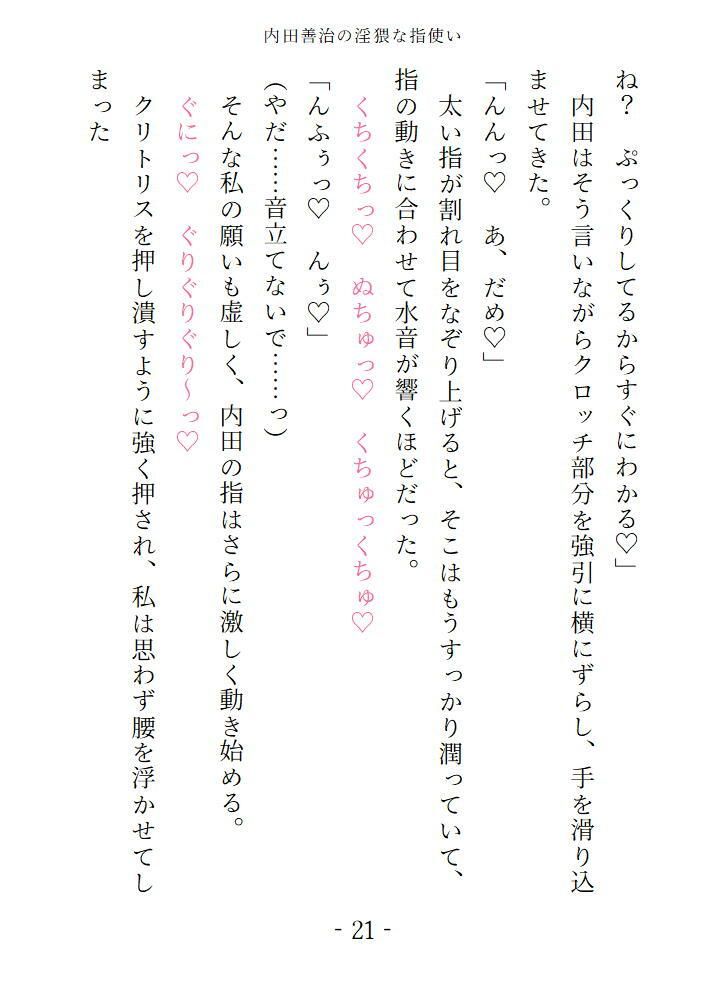 内田善治の淫猥な指使い
ね？　ぷっくりしてるからすぐにわかる♡」
　内田はそう言いながらクロッチ部分を強引に横にずらし、手を滑り込
ませてきた。
「んんっ♡　あ、だめ♡」
　太い指が割れ目をなぞり上げると、そこはもうすっかり潤っていて、
指の動きに合わせて水音が響くほどだった。
　くちくちっ♡　ぬちゅっ♡　くちゅっくちゅ♡
「んふぅっ♡　んぅ♡」
(やだ……音立てないで……っ)
　そんな私の願いも虚しく、内田の指はさらに激しく動き始める。
　ぐにっ♡　ぐりぐりぐり～っ♡
　クリトリスを押し潰すように強く押され、私は思わず腰を浮かせてし
まった
- 21 -